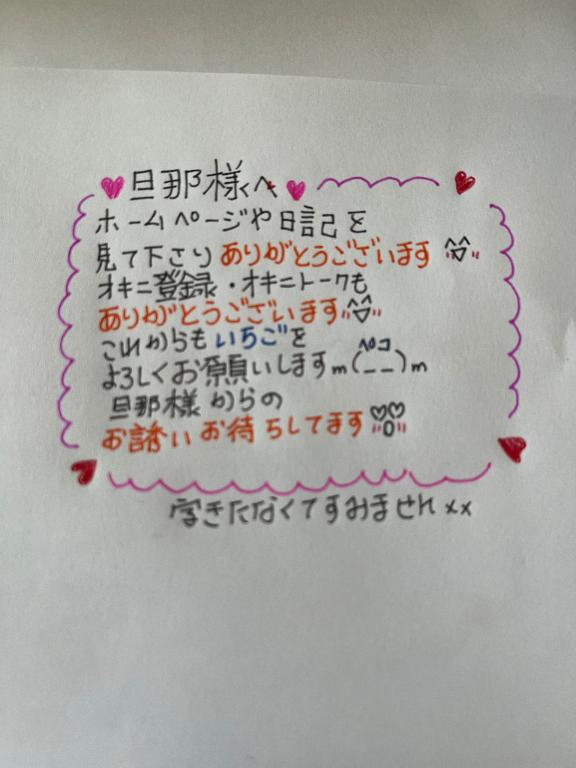 旦那様へ
ホームページや日記を
見て下さり ありがとうございます
オキニ登録・オキニトークも
ありがとうございます
これからも いちごを
よろしくお願いしますm(__)m
ペコ
旦那様 からの
お誘い お待ちしてます
字きたなくてすみません××